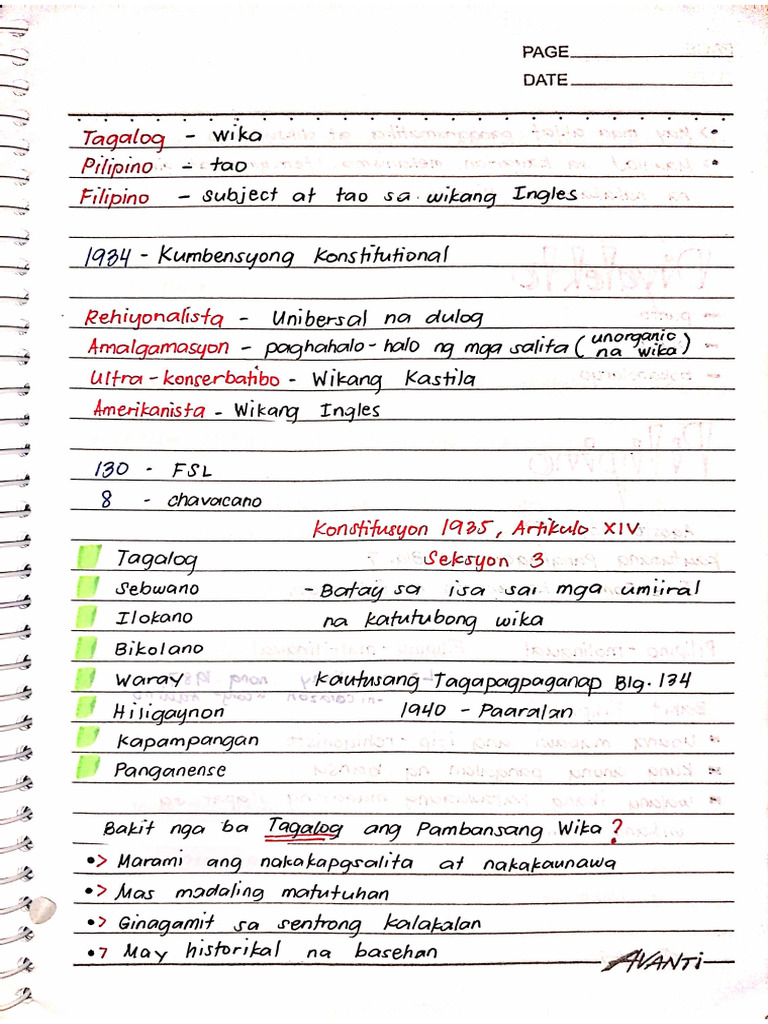 PAGE
DATE
Tagalog - wika
Pilipino - tao
Filipino - subject at tao sa wikang Ingles
1934 - Kumbensyong Konstitutional
Rehiyonalista - Unibersal na dulog
Amalgamasyon - paghahalo-halo ng mga salita (unorganic na wika)
Ultra-konserbatibo - Wikang Kastila
Amerikanista - Wikang Ingles
130 - FSL
8 - chavacano
Konstitusyon 1935, Artikulo XIV
Tagalog Seksyon 3
Sebwano - Batay sa isa sai mga umiiral
Ilokano na katutubong wika
Bikolano
Waray Kautusang Tagapagpaganap Blg. 134
Hiligaynon 1940 - Paaralan
Kapampangan
Panganense
Bakit nga ba Tagalog ang Pambansang Wika?
•> Marami ang nakakapgsalita at nakakaunawa
•> Mas madaling matutuhan
•> Ginagamit sa sentrong kalakalan
•> May historikal na basehan
AVANTi